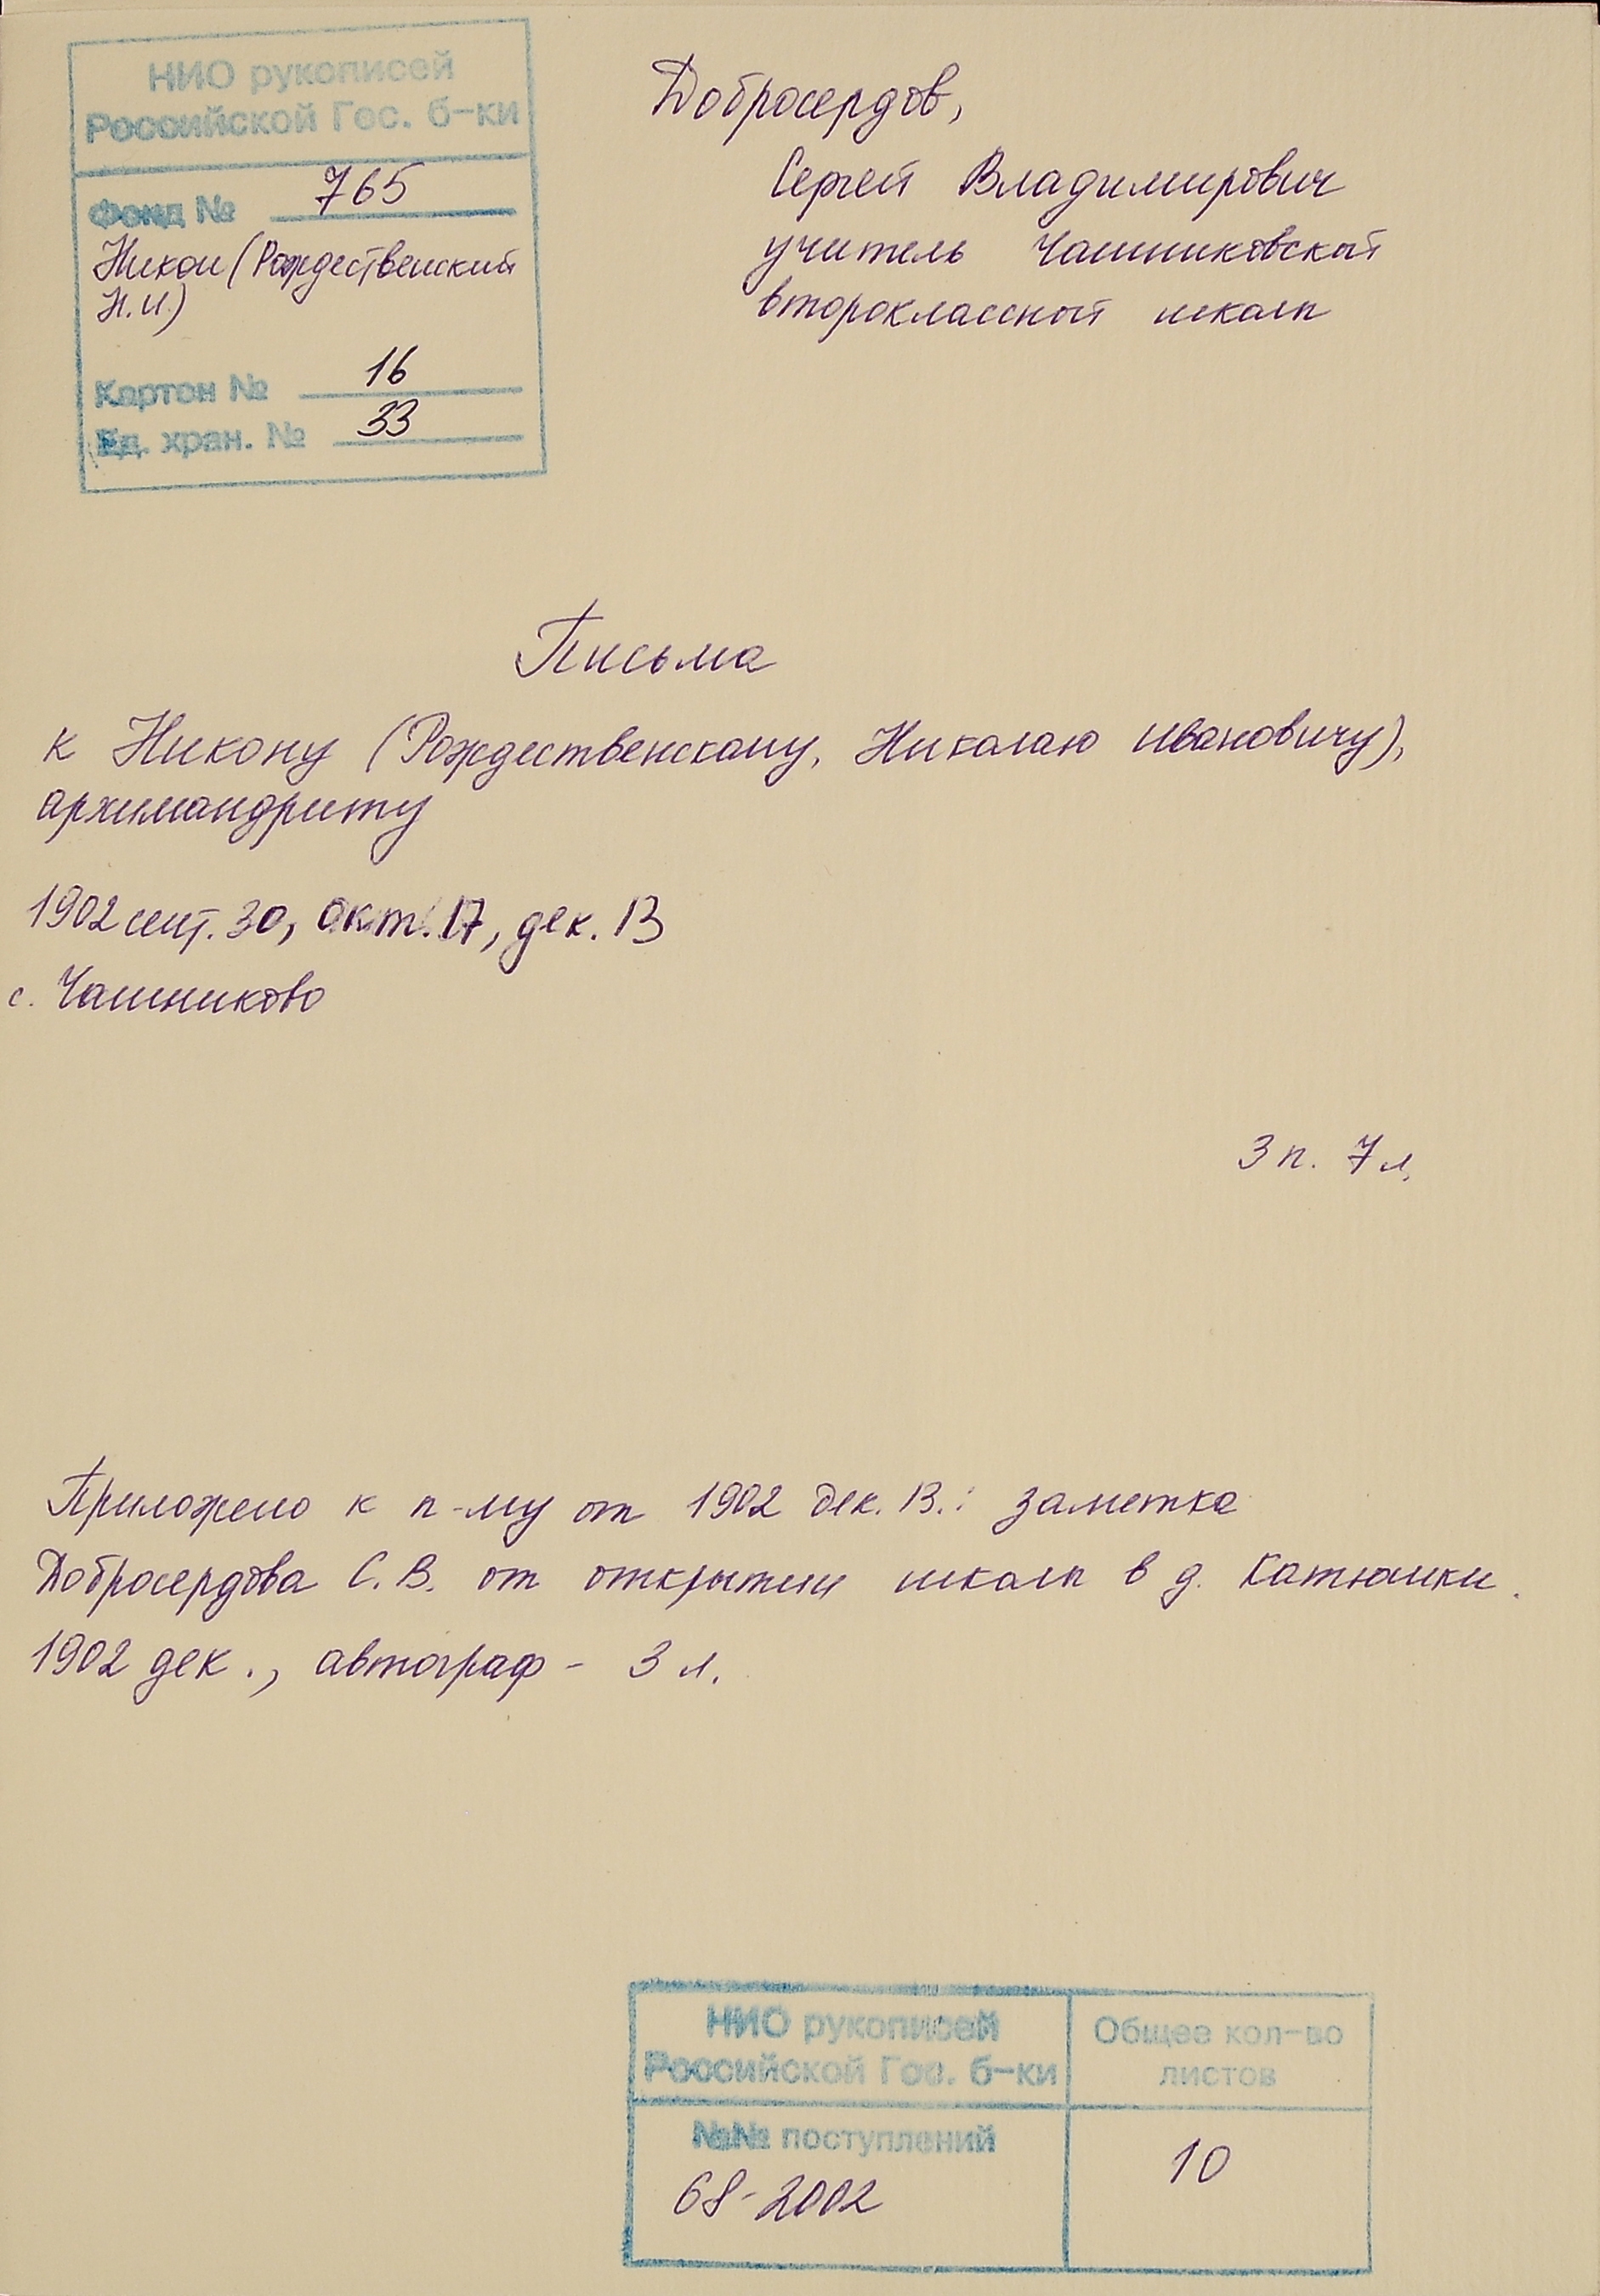 НИО рукописей
Российской Гос. б-ки
Фонд № 765
Никон (Рождественский
Н.И.)
Картон № 16
Ед. хран. № 33
Добросердов,
Сергей Владимирович
учитель Чашниковской
второклассной школы
Письма
к Никону (Рождественскому, Николаю Ивановичу),
архимандриту
1902 сент. 30, окт. 17, дек. 13
с. Чашниково
3 п. 7 л.
Приложено к п-му от 1902 дек. 13.: заметка
Добросердова С.В. от открытии школы в д. Катюшки.
1902 дек., автограф - 3 л.
НИО рукописей
Российской Гос. б-ки
Общее кол-во
листов
№№ поступлений
68-2002
10